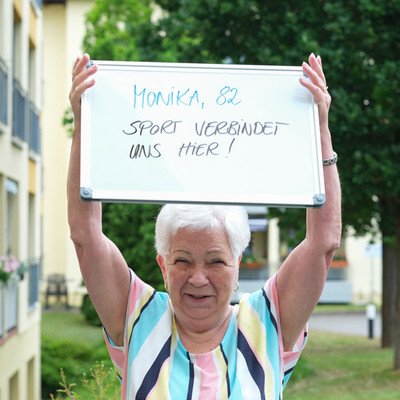 MONIKA, 82
SPORT VERBINDET
UNS HIER!